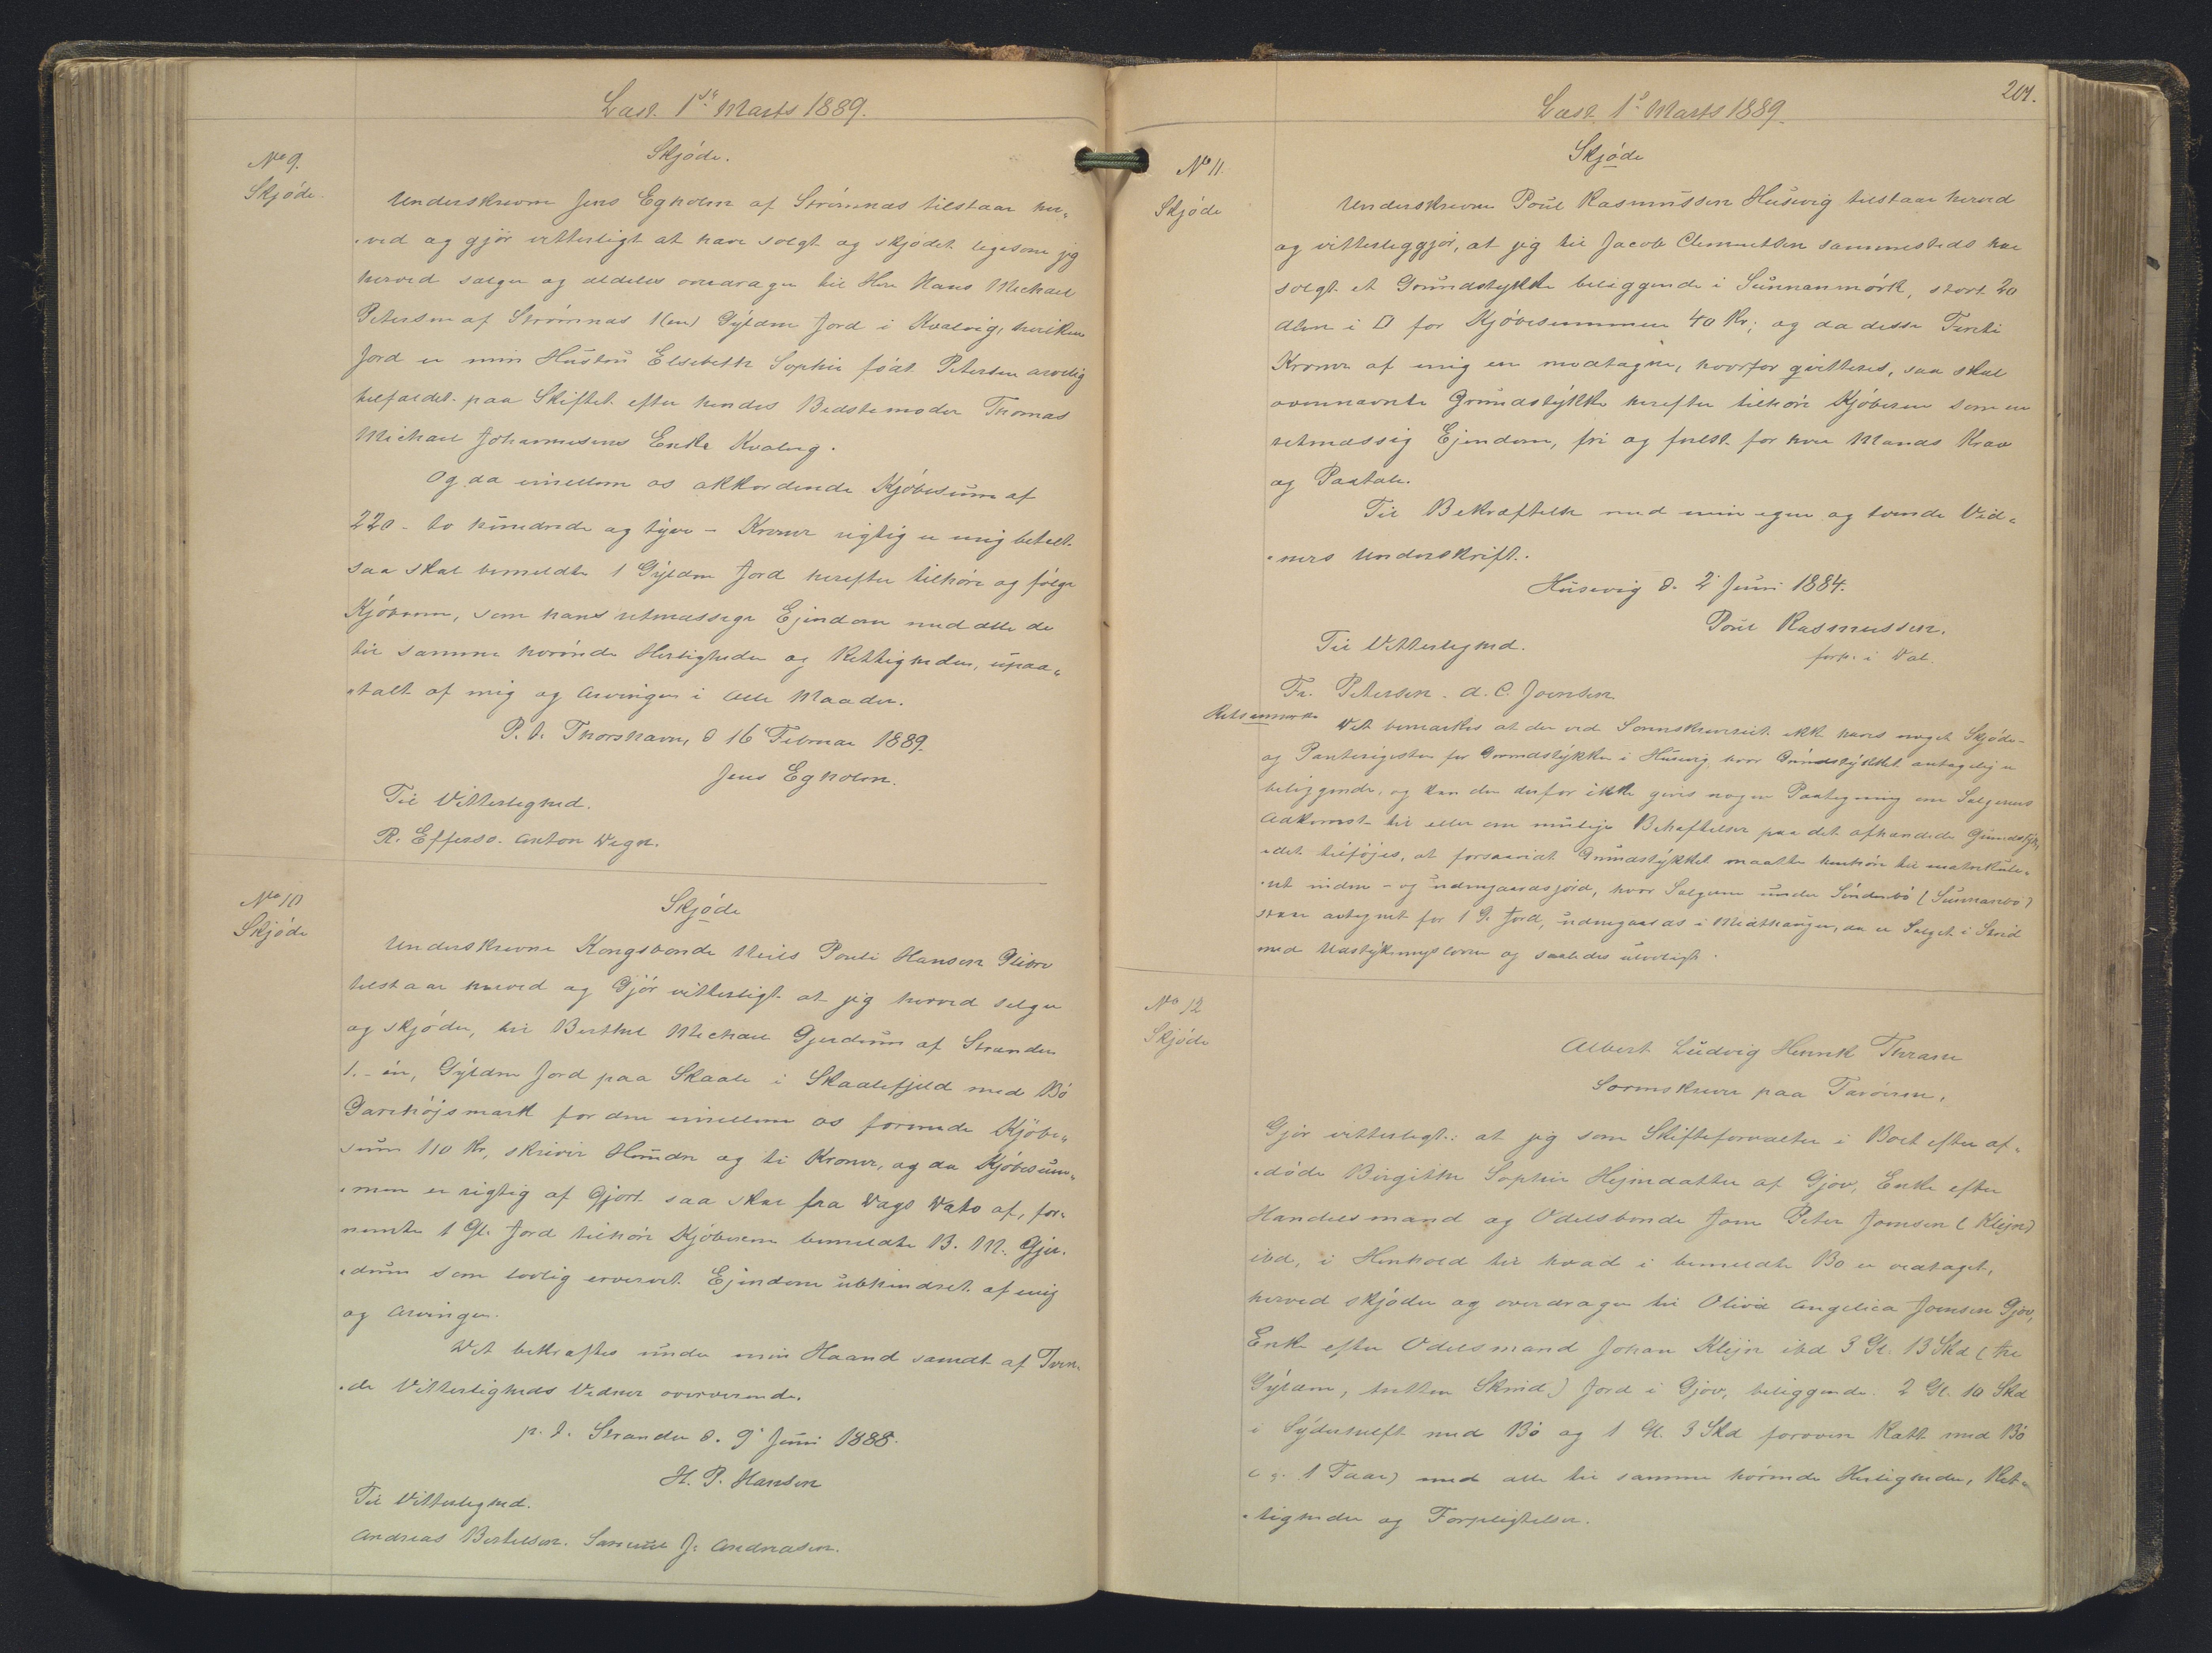 Læst. 1ste Marts 1889.
No 9.
Skjöde.
Skjöde.
Underskrevne Jens Egholm af Strömnæs tilstaar her„
„ved og gjör vitterligt at have solgt og skjödet ligesom jeg
herved sælger og aldeles overdrager til Herr Hans Michael
Petersen af Strömnæs 1(en) Gylden Jord i Kvalvig, hvilken
Jord er min Hustru Elsebeth Sophie födt Petersen arvelig
tilfaldet paa Skiftet efter hendes Bedstemoder Thomas
Michael Johannesens Enke Kvalvig.
Og da imellem os akkorderede Kjöbesum af
220 - to hundrede og tyve - Kroner rigtig er mig betalt
saa skal bemeldte 1 Gylden Jord herefter tilhöre og fölge
Kjöberen, som hans retmæssige Ejendom med alle de
til samme hörende Herligheder og Rettigheder, upaa„
„talt af mig og Arvinger i alle Maader.
P. t. Thorshavn, d 16 Februar 1889.
Jens Egholm.
Til Vitterlighed.
R. Effersö. Anton Degn.
No 10
Skjöde
Skjöde
Underskrevne Kongsbonde Niels Pouli Hansen Glibre
tilstaar herved og Gjör vitterligt at jeg herved selger
og skjöder, til Berthel Michael Gjerdum af Strander
1. - én, Gylden Jord paa Skaale i Skaalefjeld med Bö
Garehöjsmark for den imellem os formede Kjöbe„
sum 110 Kr, skriver Hundre og ti Kroner, og da Kjöbesum„
„men er rigtig af Gjort saa skal fra Dags Dato af, for„
nemte 1 Gl. Jord tilhöre Kjöberen bemeldte B. M. Gjer„
„dum som lovlig erververt Ejendom ubehindret af mig
og Arvinger.
Det bekræftes under min Haand samdt af Tven„
„de Vitterligheds Vedner overværende.
p. t. Strander d. 9' Juni 1888.
H. P. Hansen
Til Vitterlighed.
Andreas Bertelsen. Samuel J. Andreasen.
201.
Læst 1ste Marts 1889.
No 11.
Skjöde
Skjöde
Underskrevne Poul Rasmussen Húsevig tilstaar herved
og vitterleggjör, at jeg til Jacob Clementsen sammesteds har
solgt et Grundstykke beliggende i Sunnanmörk, stort 20
Alen i □ for Kjöbesummen 40 Kr; og da disse Fireti
Kroner af mig er modtagne, hvorfor qvitteres, saa skal
ovennævnte Grundstykke herefter tilhöre Kjöberen som en
retmæssig Ejendom, fri og frelst for hver Mands Krav
og Paatale.
Til Bekræftelse med min egen og tvende Vid„
„ners Underskrift.
Húsevig d. 2 Juni 1884.
Poul Rasmussen.
forp. i Dal.
Til Vitterlighed.
Fr. Petersen. d. C. Joensen
Retsanmærk.
Det bemærkes at der ved Sorenskriveriet ikke haves noget Skjöde-
og Panteregister for Grundstykker i Húsevig, hvor Grundstykket antagelig er
beliggende, og kan der derfor ikke gives nogen Paategning om Sælgerens
Adkomst til eller om mulige Behæftelser paa det afhændede Grundstykke,
„det tilföjes, at forsaavidt Grundstykket maatte henhöre til matrikule„
„ret inden- og udengaardsjord, hvor Sælgeren under Sönderbö (Sunnanbö)
staar antegnet for 1 G. Jord, udengaards i Midthaugen, da er Salget i Strid
med Udstykningsloven og saaledes ulovligt.
No 12
Skjöde
Albert Ludvig Henrik Thrane
Sorenskriver paa Færöerne,
Gjör vitterligt: at jeg som Skifteforvalter i Boet efter af„
„döde Birgithe Sophie Hejnesdatter af Gjov, Enke efter
Handelsmand og Odelsbonde Joen Peter Joensen (Klejn)
ibd, i Henhold til hvad i bemeldte Bo er vedtaget,
herved skjöder og overdrager til Olivia Angelica Joensen Gjov,
Enke efter Odelsmand Johan Klejn ibd 3 Gl. 13 Skd (tre
Gylden, tretten Skind) Jord i Gjov, beliggende 2 Gl. 10 Skd
i Syderhelft med Bö og 1 Gl. 3 Skd foroven Ratt med Bö
(g. 1 Faar) med alle til samme hörende Herligheder, Ret„
„tigheder og Forpligtelser.